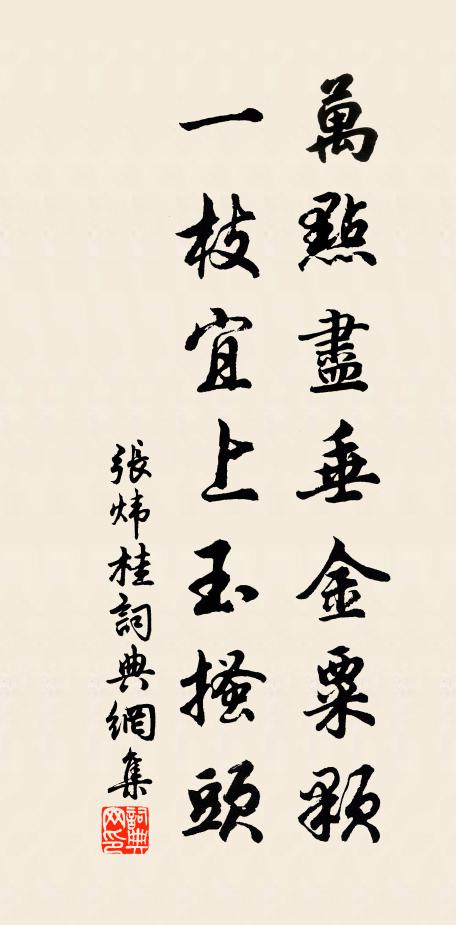 萬點盡垂金粟顆
一枝宜上玉搔頭
張煒桂詞典網集
詞典網印